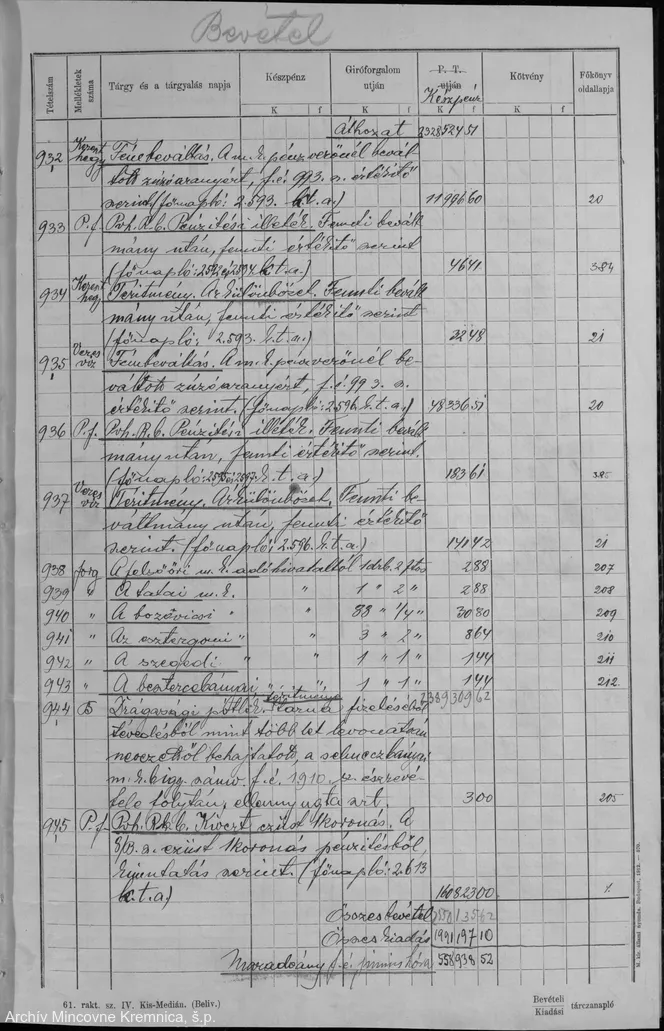 Bevétel
Tételszám
Mellékletek száma
Tárgy és a tárgyalás napja
Készpénz
Giróforgalom útján
P. T. útján
Készpénz
Kötvény
Főkönyv oldallapja
K f K f K f K f
Áthozat 2328524 51
932 Kereszthegy Fémbeváltás. A m. k. pénzverőnél bevál-
tott zúzóaranyért, f. é. 993. sz. értékítő
szerint (főnapló: 2.593. k. t. a.) 11996 60 20
933 P. f. Pvh. R. b. Pénzítési illeték. Fennti bevált
mány után, fennti értékítő szerint
k. t. a.) 46 41 384
934 Kereszthegy Térítmény. Árkülönbözet. Fennti bevált
mány után, fennti értékítő szerint
(főnapló: 2.593. k. t. a.) 32 48 21
935 Veresvíz Fémbeváltás. A m. k. pénzverőnél be-
váltott zúzóaranyért, f. é. 993. sz.
értékítő szerint. (főnapló: 2.596. k. t. a.) 48336 51 20
936 P. f. Pvh. R. b. Pénzítési illeték. Fennti bevált
mány után, fennti értékítő szerint.
k. t. a.) 183 61 385
937 Veresvíz Térítmény. Árkülönbözet. Fennti be-
váltmány után, fennti értékítő
szerint. (főnapló: 2.596. k. t. a.) 141 42 21
938 A felsőőri m. k. adóhivataltól 1 drb. 2 ftos 2 88 207
939 " A tatai m. k. " 1 " 2 " 2 88 208
940 " A bozovicsi " " 88 " 1/4 " 30 80 209
941 " Az esztergomi " 3 " 2 " 8 64 210
942 " A szegedi " 1 " 1 " 1 44 211
943 " A besztercebányai " " 1 " 1 " 1 44 212
2389309 62
944 B Drágasági pótlék térítménye fizetéséből
tévedésből mint többlet levonatván
nevezettől behajtatott, a selmeczbányai
m. k. f. é. 1910. sz. észrevé-
tele folytán, ellennyugta szt. 3 00 205
945 P. f. Pvh. R. b. Kivert ezüst 1 koronás. A
sz. ezüst 1 koronás pénzítésből,
kimutatás szerint. (főnapló: 2.613
k. t. a.) 160823 00 1
Összes bevétel 2550135 62
Összes kiadás 1991197 10
Maradvány f. é. június hóra 558938 52
61. rakt. sz. IV. Kis-Medián. (Beliv.)
Bevételi
Kiadási tárczanapló
Archív Mincovne Kremnica, š.p.